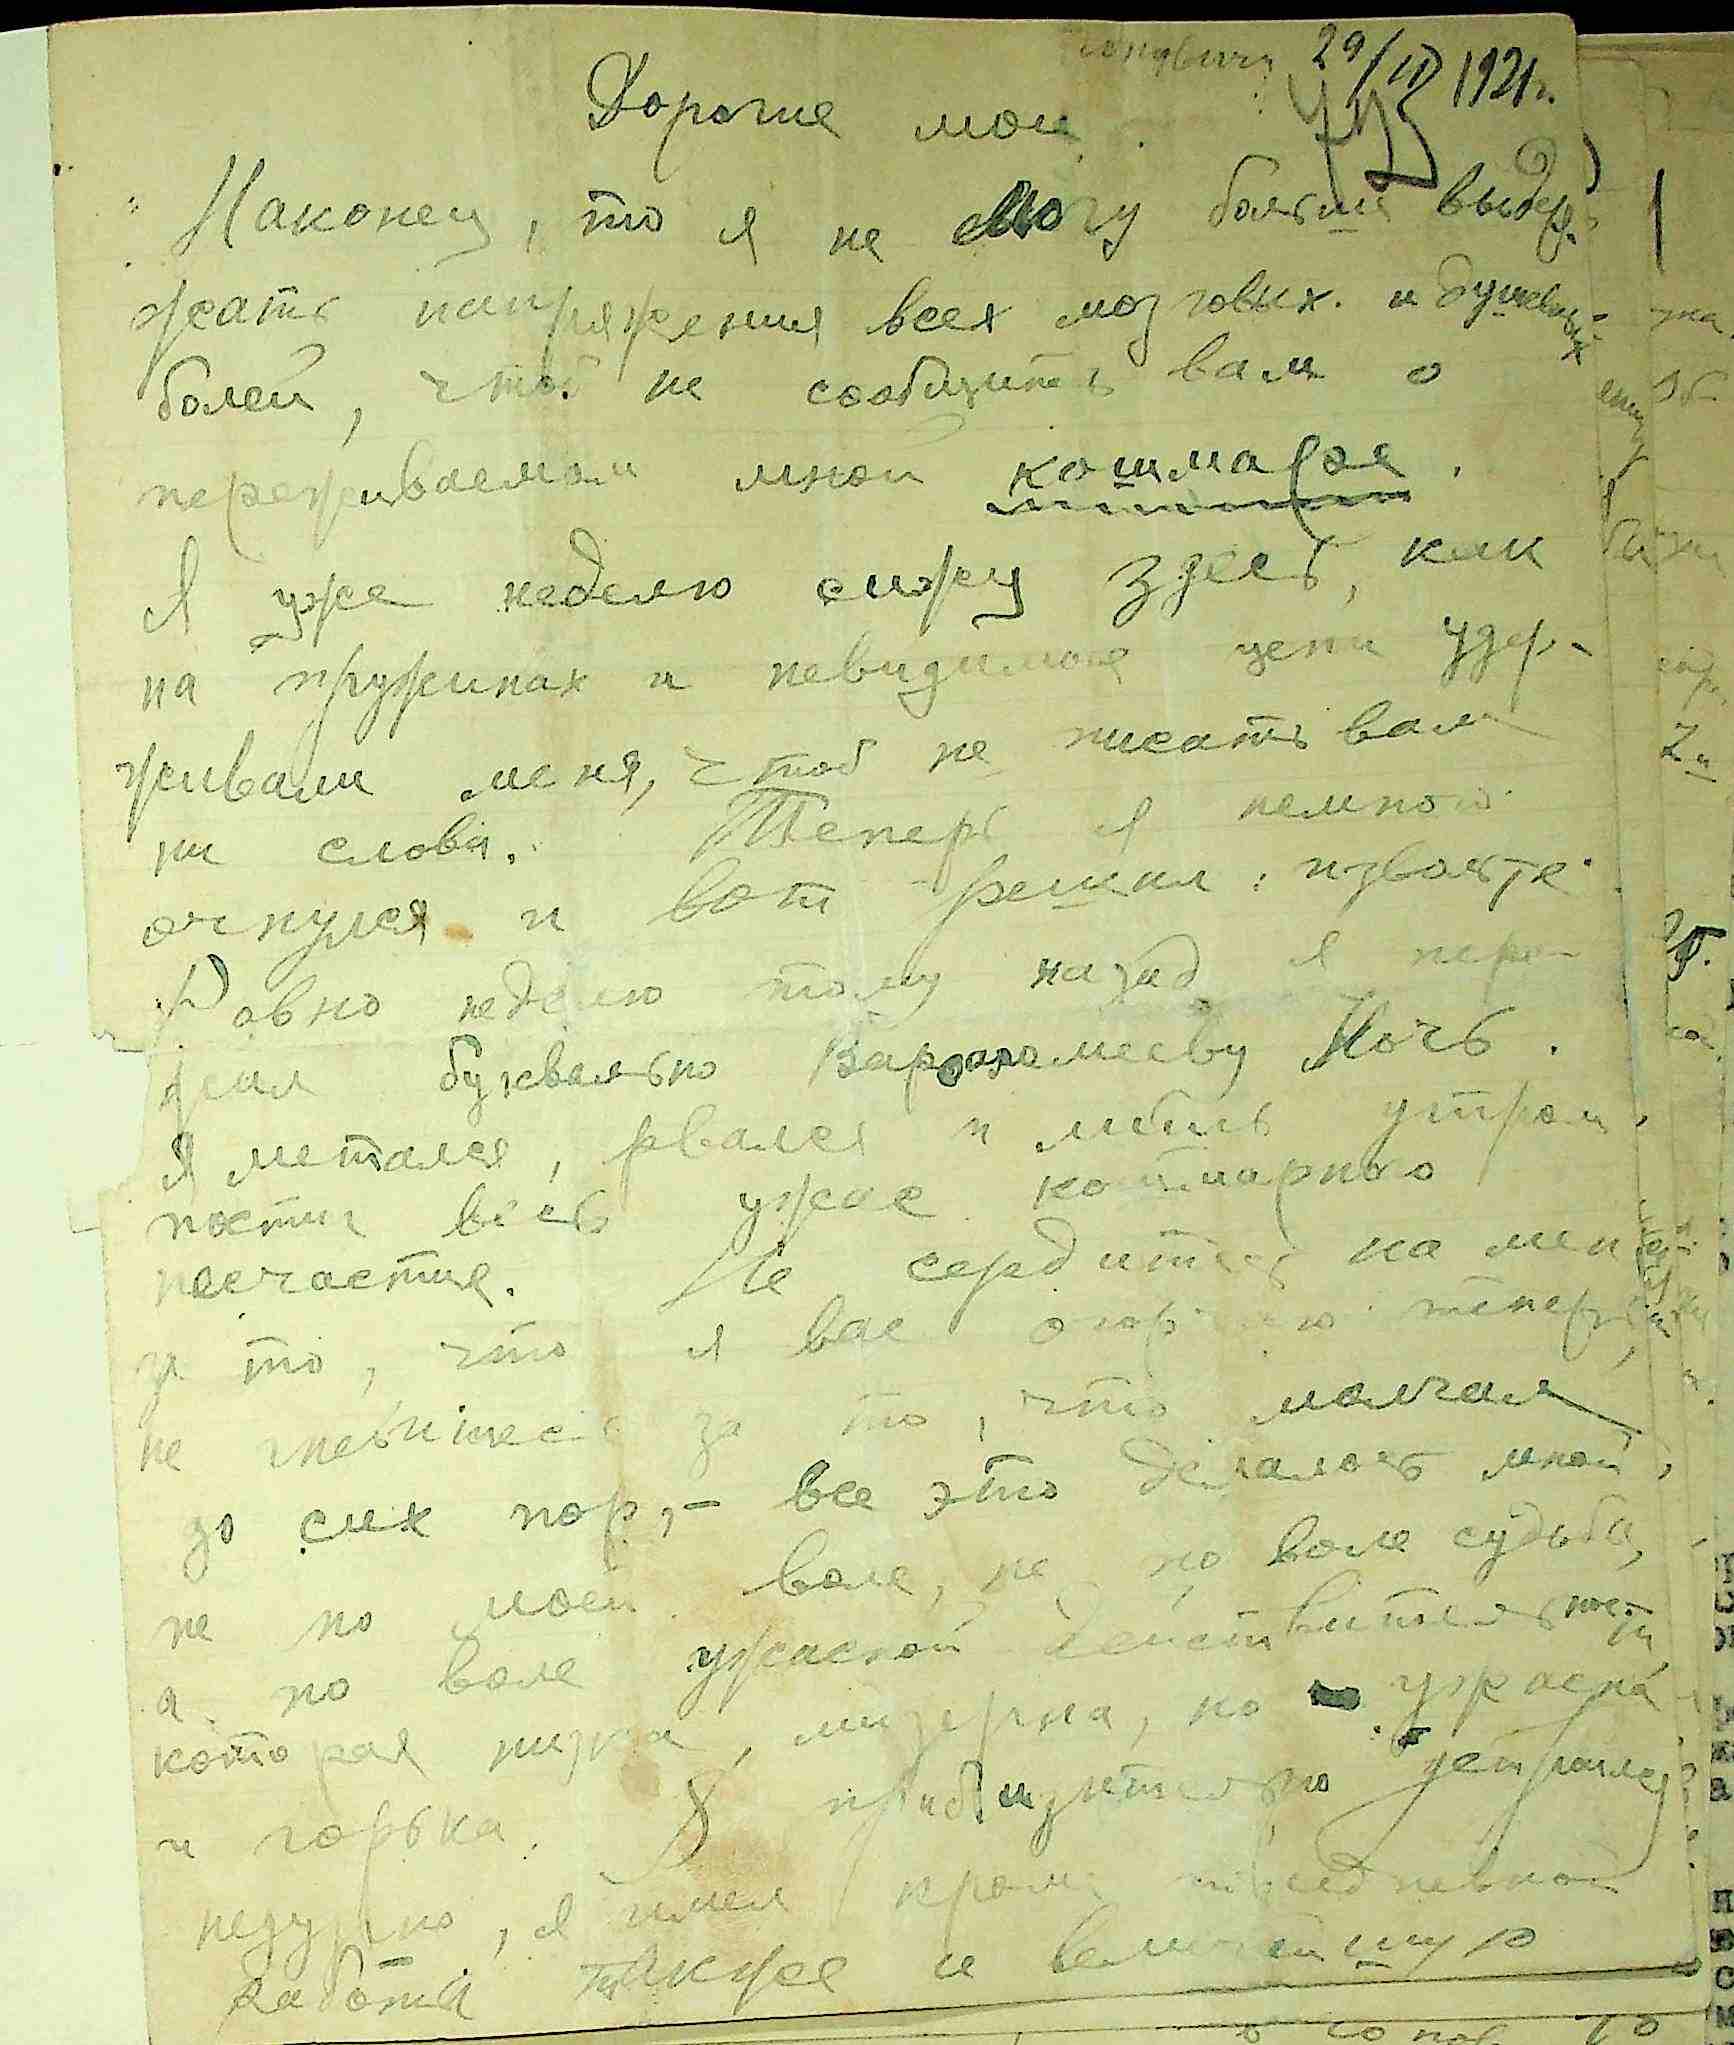 29/IV 1921г.
Дорогие мои
Наконец, то я не могу больше выдер-
жать напряжения всех мозговых и душевных
болей, чтоб не сообщить вам о
переживаемом мной кошмаре.
Я уже неделю сижу здесь, как
на пружинах и невидимые цепи удер-
живали меня, чтоб не писать вам
ни слова. Теперь я немного
очнулся и вот решил:
Ровно неделю тому назад я пере-
жил буквально Варфоломееву Ночь.
Я метался, рвался и лишь утром
постиг весь ужас кошмарного
несчастия. Не сердитесь на меня
за то, что я вас огорчаю теперь,
не гневитесь за то, что молчал
до сих пор, - все это делалось мной,
не по моей воле, не по воле судьбы,
а по воле ужасной действительности
которая низка, мизерна, но ужасна
и горька. Я приблизительно устроился
недурно, я имел кроме повседневной
работы также и величайшую